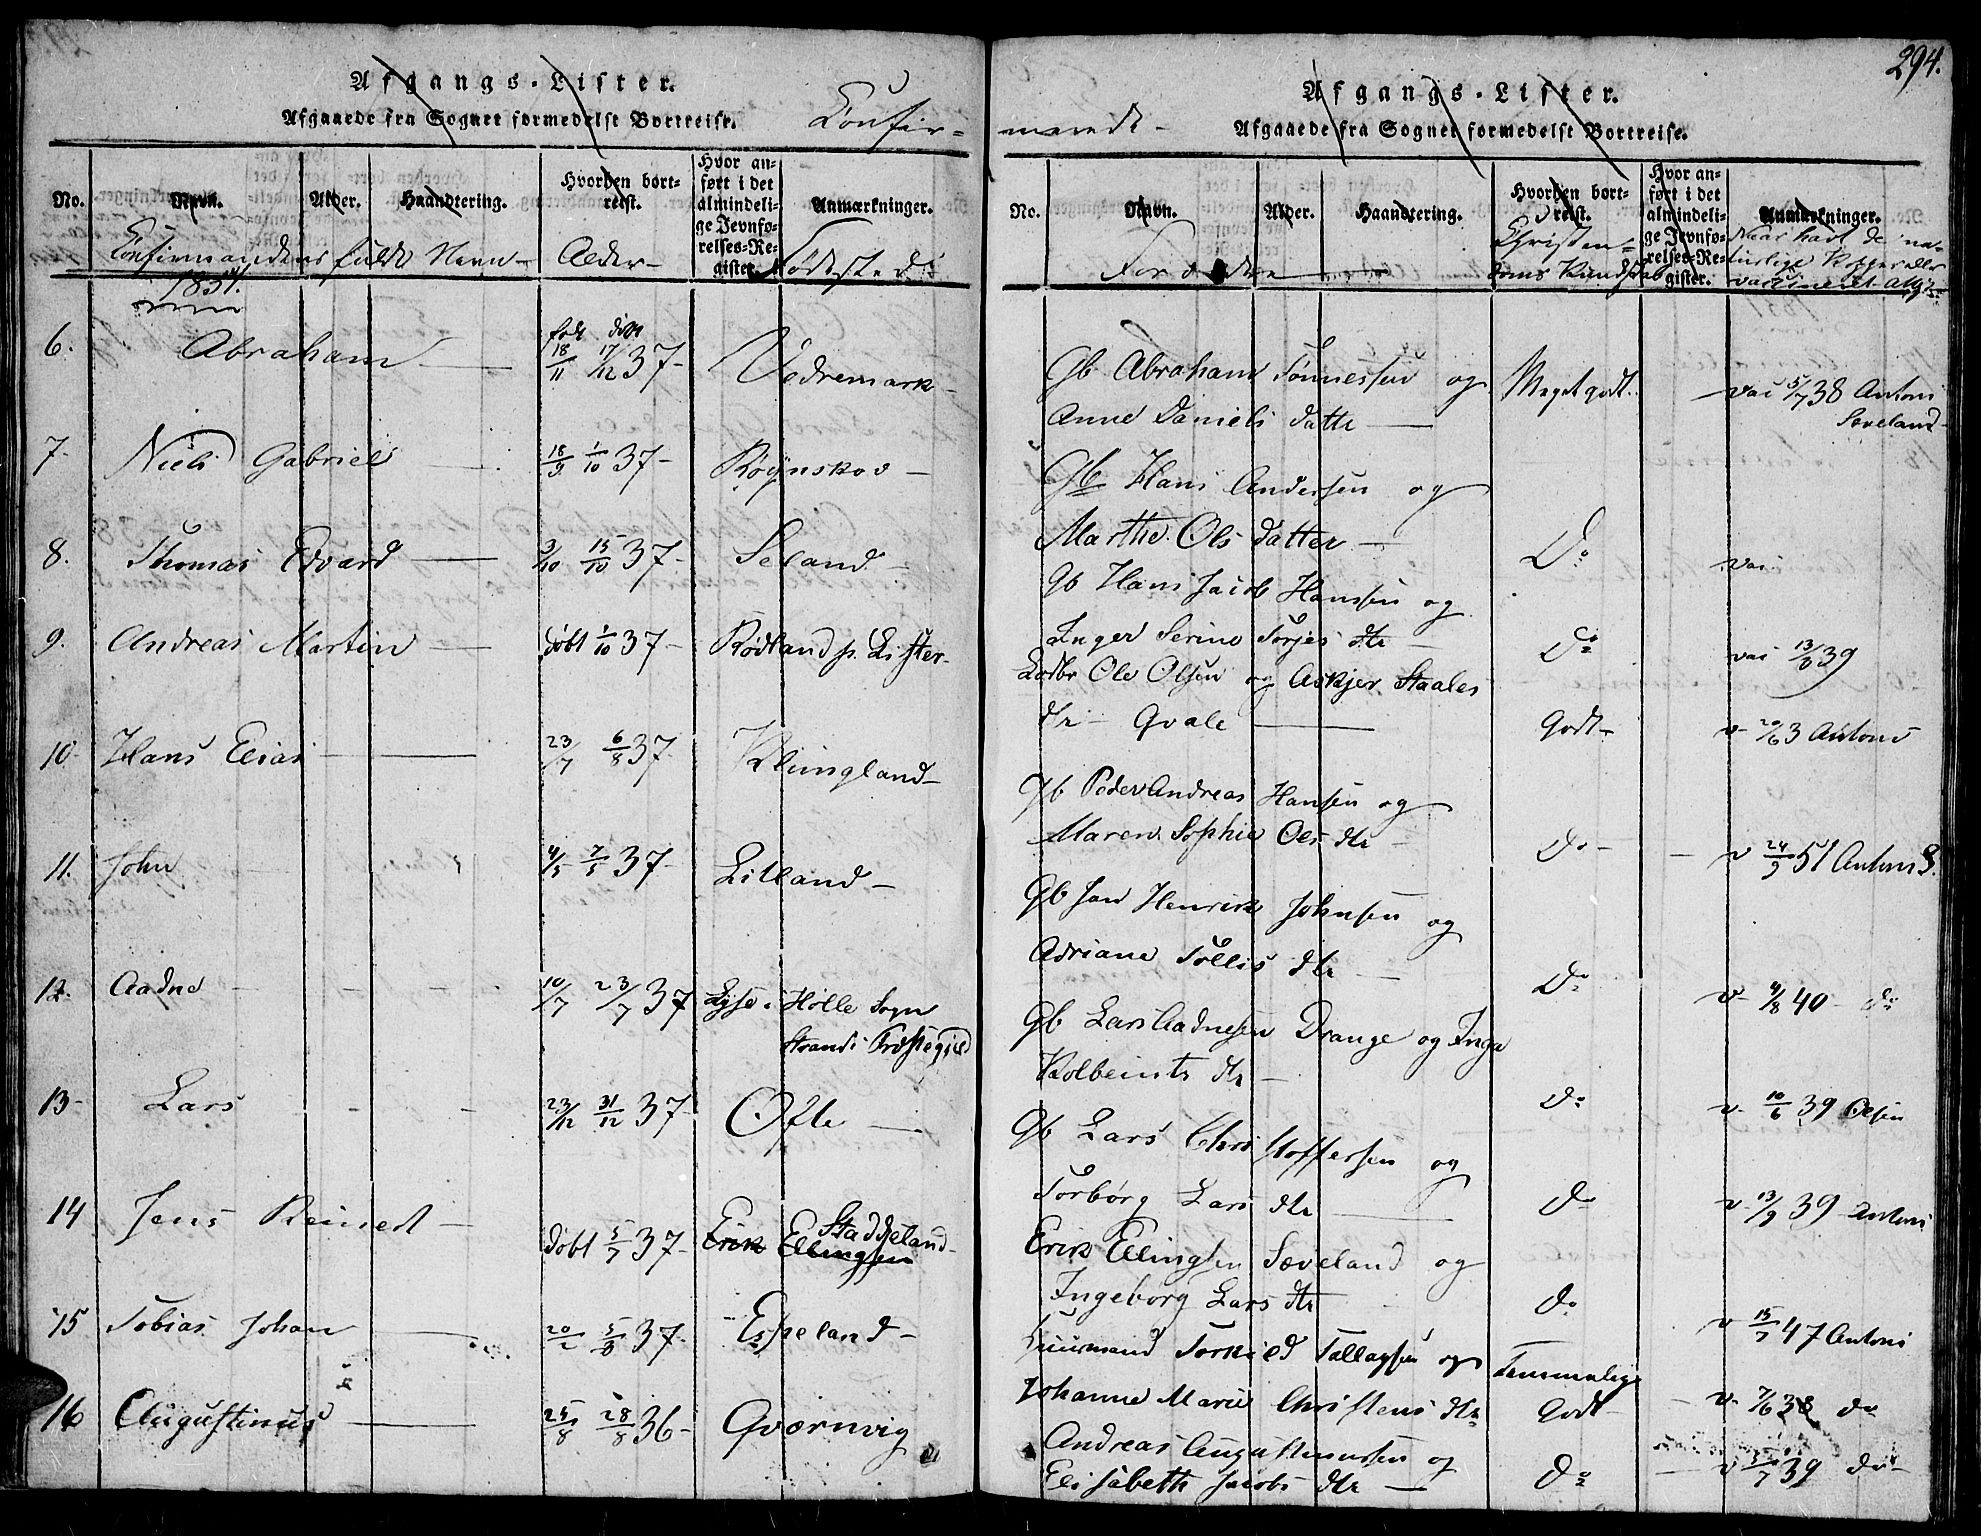 294.
Afgangs-Lister.
Afgaaede fra Sognet formedelst Bortreise.
Confir-
No.
Navn.
Alder.
Haandtering.
Hvorhen bort-
reist.
Hvor an-
ført i det
almindeli-
ge Jevnfø-
relses-Re-
gister.
Anmærkninger.
Confirmandens fulde Navn
Alder-
Fødested
6.
Abraham
født døbt
18/11 17/12 37-
Vedremark-
7-
Niels Gabriel
18/9 1/10 37-
Røynskov-
8.
Thomas Edvard
3/10 15/10 37-
Seland-
9.
Andreas Martin
døbt 1/10 37-
Rødland p. Lister-
10-
Hans Elias
23/7 6/8 37-
Klungland-
11.
John
4/5 7/5 37-
Litland-
12.
Aadne
10/7 23/7 37
Lyse i Hølle Sogn
Strands Præstegjeld
13-
Lars
23/12 31/12 37
Ofte
14
Jens Reinert-
døbt 5/7 37-
Erik Ellingsen
Staddeland-
15
Tobias Johan
20/2 5/3 37-
Espeland-
16
Augustinus
25/8 28/8 36-
Qværnvig
Afgangs-Lister.
mande-
Afgaaede fra Sognet formedelst Bortreise.
No.
Navn.
Alder.
Haandtering.
Hvorhen bort-
reist.
Hvor an-
ført i det
almindeli-
ge Jevnfø-
relses-Re-
gister.
Anmærkninger.
Forældre
Christen-
doms Kundskab
Naar havt de na-
turlige Kopper eller
vaccineret
Gb Abraham Tønnessen og
Anne Daniels datter
Meget godt.
vac 5/7 38 Antoni
Sæveland-
Gb Hans Andersen og
Marthe Ols datter
Do
vac
Gb Hans Jacob Hanssen og
Inger Serine Torjes dtr
Do
vac 13/9 39
Ole Olsen og Askjer Staales
dtr- Qvale
Godt-
v- 20/6 3 Antoni
Gb Peder Andreas Hansen og
Maren Sophie Ols dtr-
Do-
v 24/9 51 Antoni S.
Gb Jan Henrik Johnsen og
Adriane Tollis dtr
Do
v- 4/8 40- do
Gb Lars Aadnesen Drange og Inga
Kolbeints dtr-
do
v- 10/6 39 Olsen
Gb Lars Christoffersen og
Torbørg Lars dtr
do
v- 13/9 39 Antoni
Erik Ellingsen Sæveland og
Ingeborg Lars dtr
do
v 15/7 47 Antoni
Huusmand Torkild Tallagsen og
Johanne Marie Christens dtr
Temmelig
Godt
v- 7/6 38 do
Andreas Augustinussen og
Elisabeth Jacobs dtr
do
39 do-